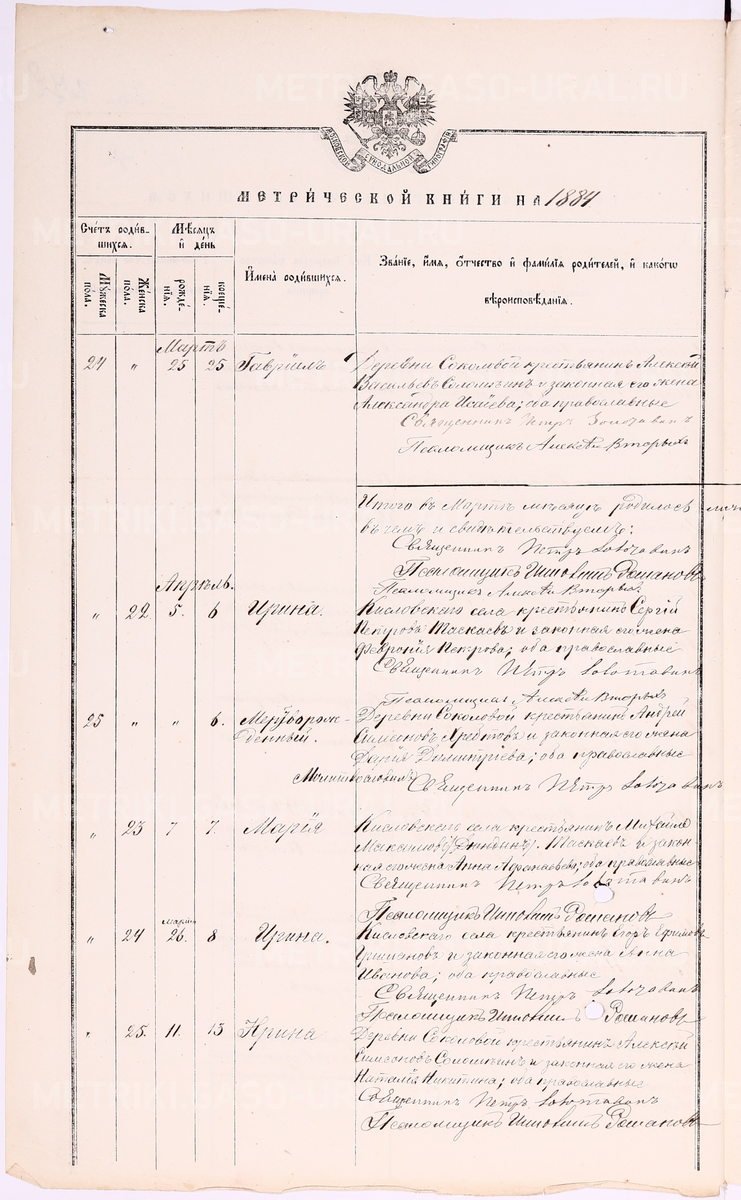 МЕТРИ́ЧЕСКОЙ КНИ́ГИ НА 1884
Счётъ роди́вшихся.
Мѣ́сяцъ и́ де́нь
И҆мена̀ роди́вшихся.
Зва́нїе, и҆́мѧ, ѻ҆́тчество и҆ фами́лїѧ роди́телей, и҆ како́гѡ
вѣроисповѣ́данїѧ.
Мꙋжеска по́ла.
Же́нска по́ла.
рожде́нїѧ.
креще́нїѧ.
Мартъ
24 " 25 25 Гавріилъ Деревни Соколовой крестьянинъ Алексѣй
Васильевъ Соломкинъ и законная его жена
Александра Исаіева; оба православные
Священникъ Петръ
Псаломщикъ Алексѣй Вторыхъ
Итого въ Мартѣ мѣсяцѣ родилось
въ чемъ и свидѣтельствуемъ:
Священникъ Петръ
Псаломщикъ Ипполитъ Романовъ
Псаломщикъ Алексѣй Вторыхъ
Апрѣль.
" 22 5. 6 Ирина. Кисловскаго села крестьянинъ Сергій
Петровъ Таскаевъ и законная его жена
Феvронія Петрова; оба православные
Священникъ Петръ
Псаломщикъ Алексѣй Вторыхъ
25 " " 6. Мертворож-
денный. Деревни Соколовой крестьянинъ Андрей
Симеоновъ и законная его жена
Димитріева; оба православные
Священникъ Петръ
" 23 7 7. Марія Кисловскаго села крестьянинъ Михаилъ
Максимовъ Таскаевъ и закон-
ная его жена Анна; оба православные
Священникъ Петръ
Псаломщикъ Ипполитъ Романовъ
Марта
" 24 26. 8 Ирина. Кисловскаго села крестьянинъ Егоръ Ефимовъ
и законная его жена Анна
Иванова; оба православные
Священникъ Петръ
Псаломщикъ Ипполитъ Романовъ
" 25. 11. 13 Ирина Деревни Соколовой крестьянинъ Алексѣй
Симеоновъ Соломкинъ и законная его жена
Наталія Никитина; оба православные
Священникъ Петръ
Псаломщикъ Ипполитъ Романовъ